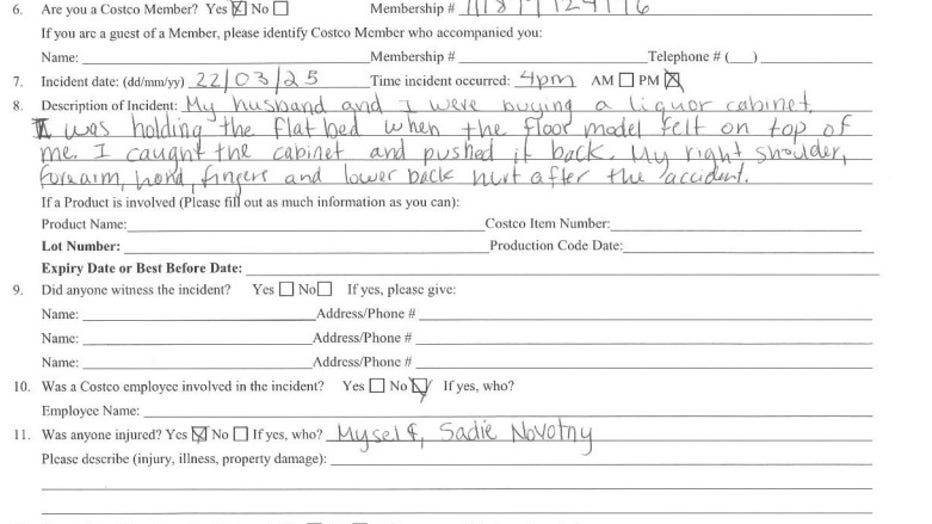 6. Are you a Costco Member? Yes ☒ No ☐ Membership #
If you are a guest of a Member, please identify Costco Member who accompanied you:
Name: Membership # Telephone # ( )
7. Incident date: (dd/mm/yy) 22/03/25 Time incident occurred: 4pm AM ☐ PM ☒
8. Description of Incident: My husband and I were buying a liquor cabinet.
I was holding the flat bed when the floor model felt on top of
me. I caught the cabinet and pushed it back. My right shoulder,
forearm, hand, fingers and lower back hurt after the accident.
If a Product is involved (Please fill out as much information as you can):
Product Name: Costco Item Number:
Lot Number: Production Code Date:
Expiry Date or Best Before Date:
9. Did anyone witness the incident? Yes ☐ No ☐ If yes, please give:
Name: Address/Phone #
Name: Address/Phone #
Name: Address/Phone #
10. Was a Costco employee involved in the incident? Yes ☐ No ☒ If yes, who?
Employee Name:
11. Was anyone injured? Yes ☒ No ☐ If yes, who? Myself, Sadie Novotny
Please describe (injury, illness, property damage):